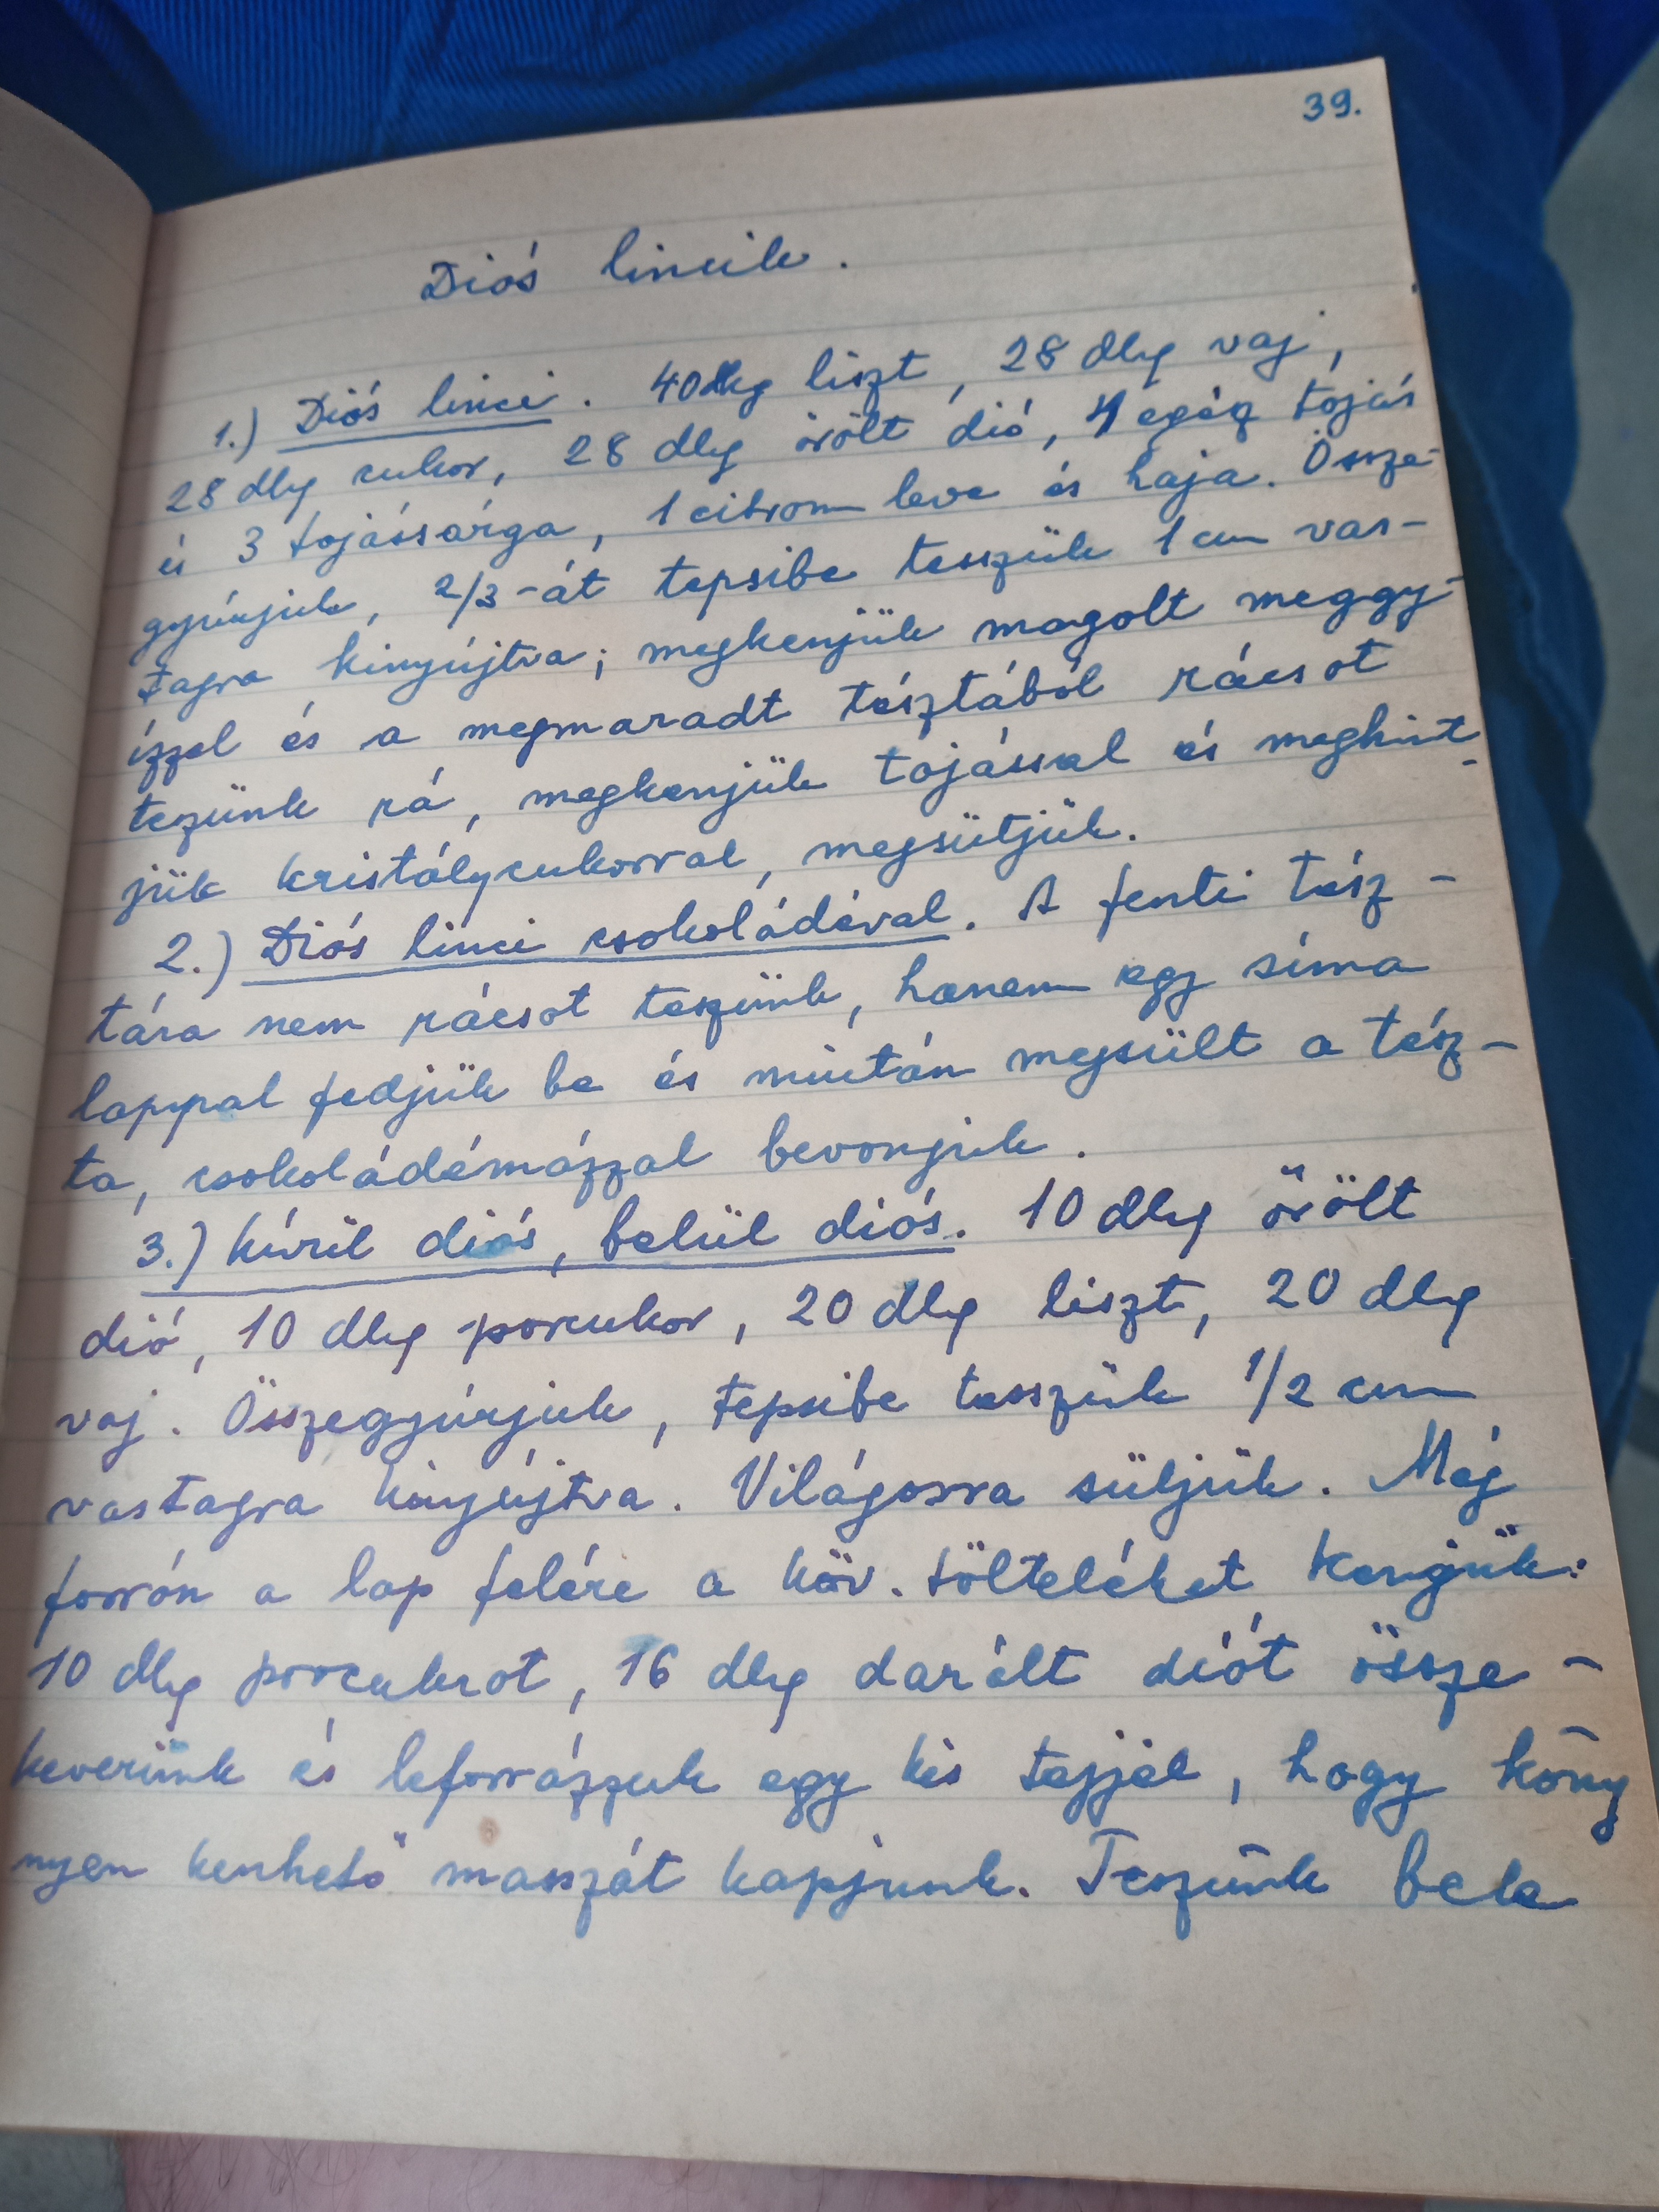 39.
Diós lincik.
1.) Diós linci. 40 dkg liszt, 28 dkg vaj,
28 dkg cukor, 28 dkg őrölt dió, 1 egész tojás
és 3 tojássárga, 1 citrom leve és haja. Össze-
gyúrjuk, 2/3-át tepsibe tesszük 1 cm vas-
tagra kinyújtva; megkenjük magolt meggy-
ízzel és a megmaradt tésztából rácsot
tezünk rá, megkenjük tojással és meghint-
jük kristálycukorral, megsütjük.
2.) Diós linci csokoládéval. A fenti tész-
tára nem rácsot teszünk, hanem egy sima
lappal fedjük be és miután megsült a tész-
ta, csokoládémázzal bevonjuk.
3.) Kívül diós, belül diós. 10 dkg őrölt
dió, 10 dkg porcukor, 20 dkg liszt, 20 dkg
vaj. Összegyúrjuk, tepsibe tesszük 1/2 cm
vastagra kinyújtva. Világosra sütjük. Még
forrón a lap felére a köv. tölteléket kenjük:
10 dkg porcukrot, 16 dkg darált diót össze-
keverünk és leforrázzuk egy kis tejjel, hogy köny
nyen kenhető masszát kapjunk. Teszünk bele